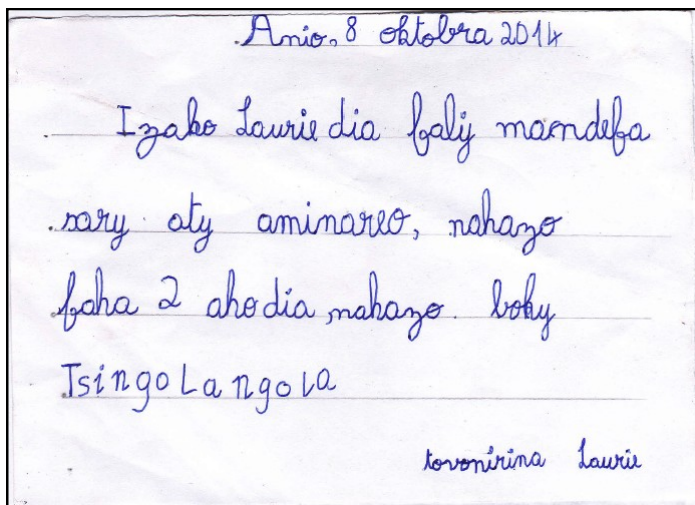 Anio, 8 oktobra 2014
Izaho Laurie dia faly mandefa
sary aty aminareo, nahazo
faha 2 aho dia nahazo boky
TsingoLangola
tovonirina Laurie